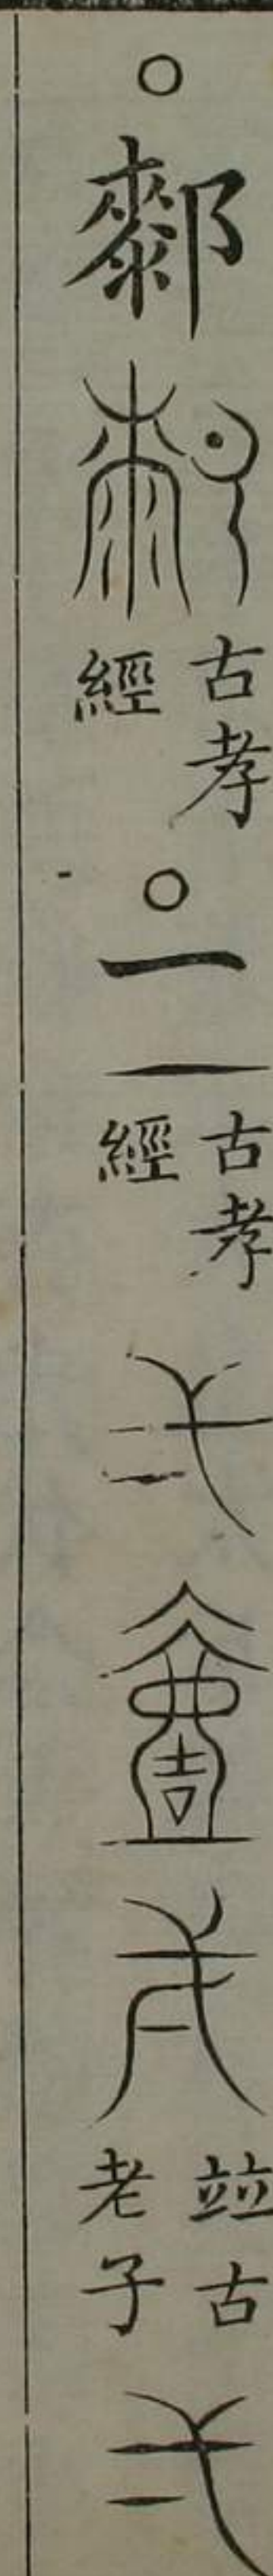 ○䣛古孝經○一一古孝經弌壹竝古老子弌